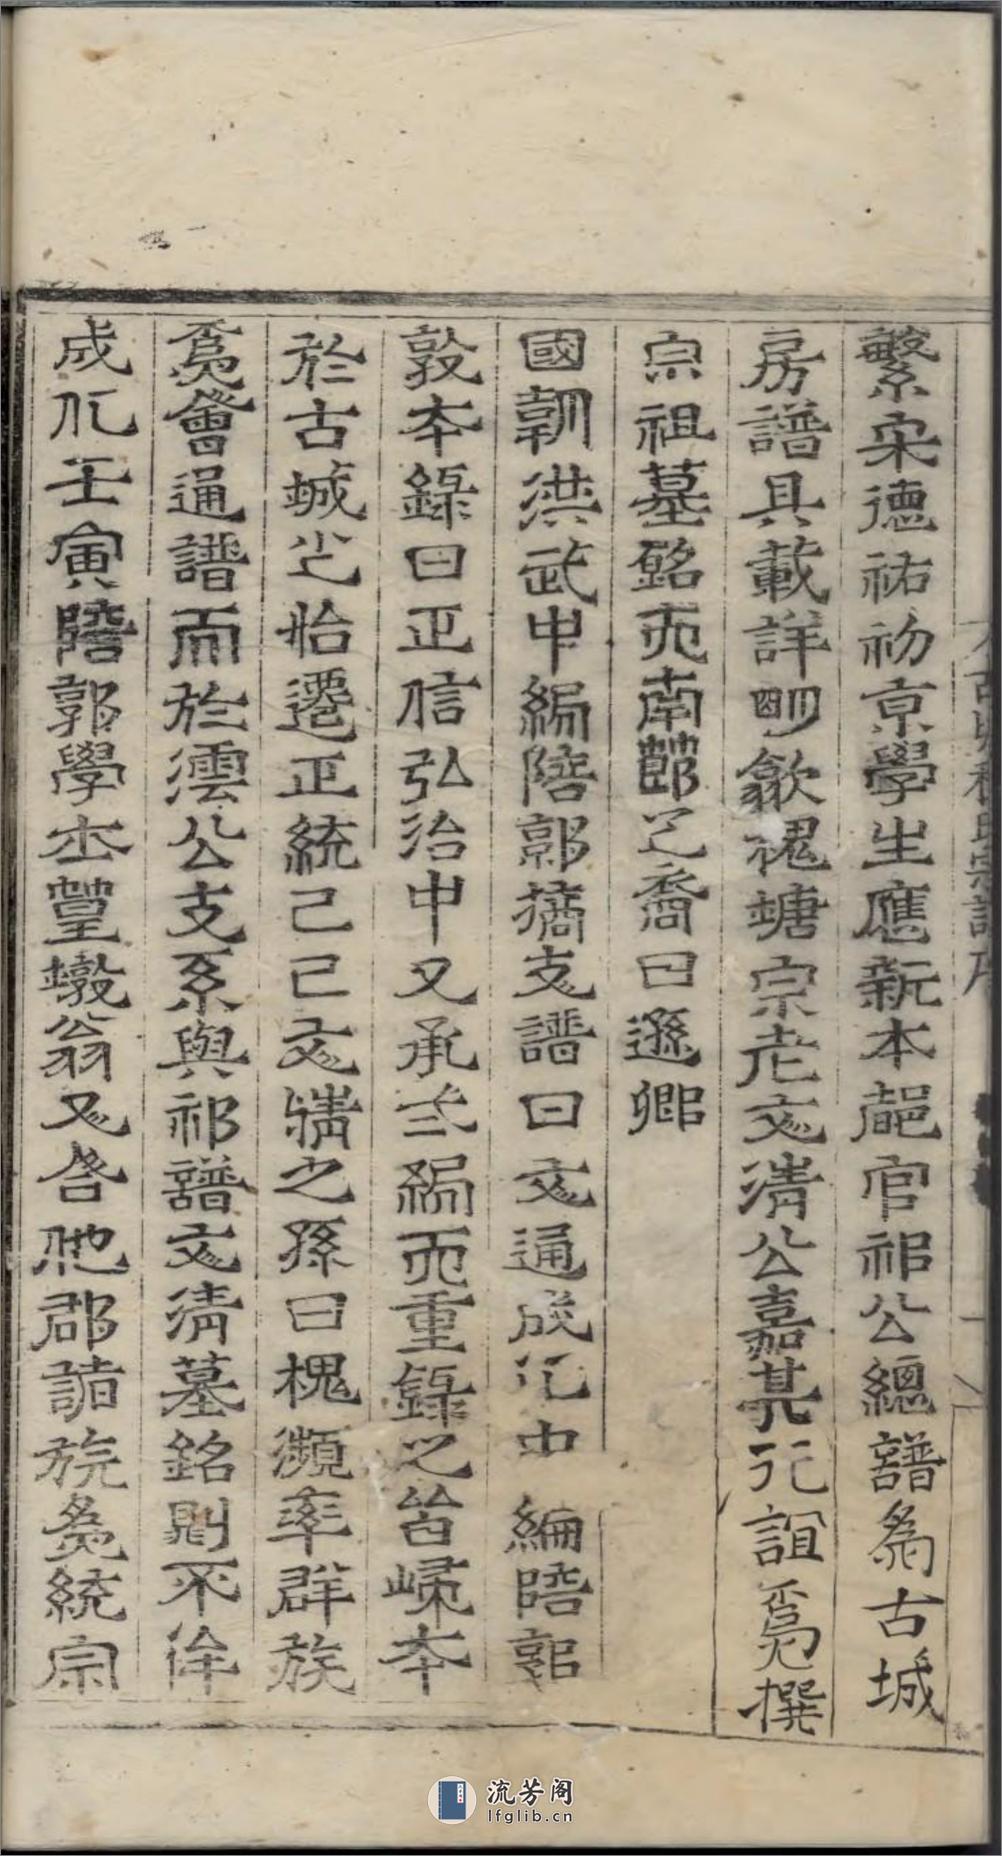 繫宋德祐初京學生應新本邑官祁公總譜為古城
房譜具載詳明歙槐塘宗老文清公嘉其行誼為撰
宗祖墓銘而南節之裔曰遜卿
國朝洪武中編陪郭摘支譜曰文通成化中編陪郭
敦本錄曰正信弘治中又承式編而重錄之皆嵊本
於古城也始遷正統己巳文精之孫曰槐瀕率群族
為會通譜而於澐公支系與祁譜文清墓銘則不徐
成化壬寅陪郭學士篁墩翁又合他郡諸族為統宗
古城程氏宗譜序
流芳阁
lfglib.cn